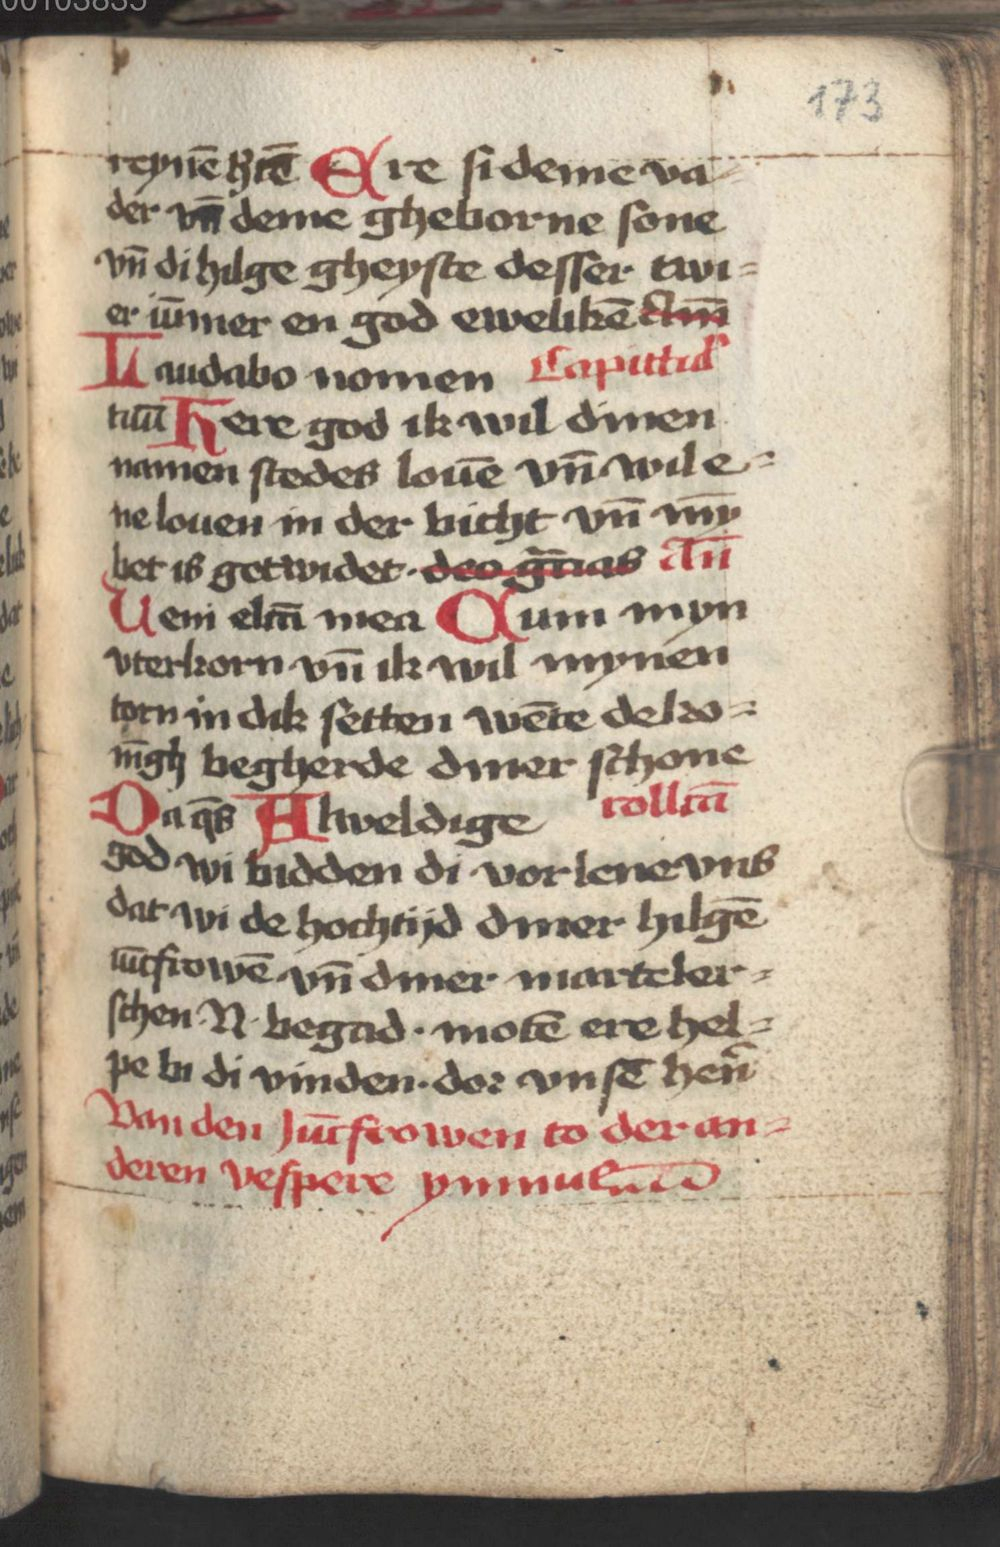 00103835
173
reynē h̄tē Ere si deme va-
der vn̄ deme gheborne sone
vn̄ di hilge gheyste desser twi-
er iūmer en god ewelikē Amē
Laudabo nomen Capittul
tuū Here god ik wil dinen
namen stedes louē vn̄ wil e-
ne louen in der bicht vn̄ mȳ
bet is getwidet. deo gr̄as an̄
Veni elcā mea Cum myn
vterkorn vn̄ ik wil mynen
torn in dik setten wēte de ko-
nīgh begherde diner schone
Da qs̄ Alweldige collcā
god wi bidden di vorlene vns
dat wi de hochtijd diner hilgē
iūcfrowē vn̄ diner marteler-
schen N begad. motē ere hel-
pe bi di vinden. dor vnsē hen̄
Van den Jūcfrowen to der an-
deren vespere ymnus